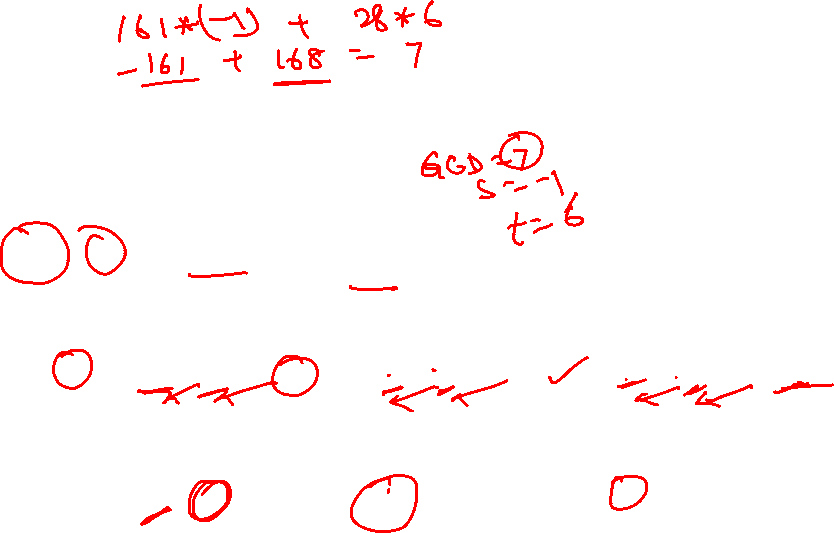 161*(-1) + 28*6
-161 + 168 = 7
GCD = 7
S = -1
t = 6